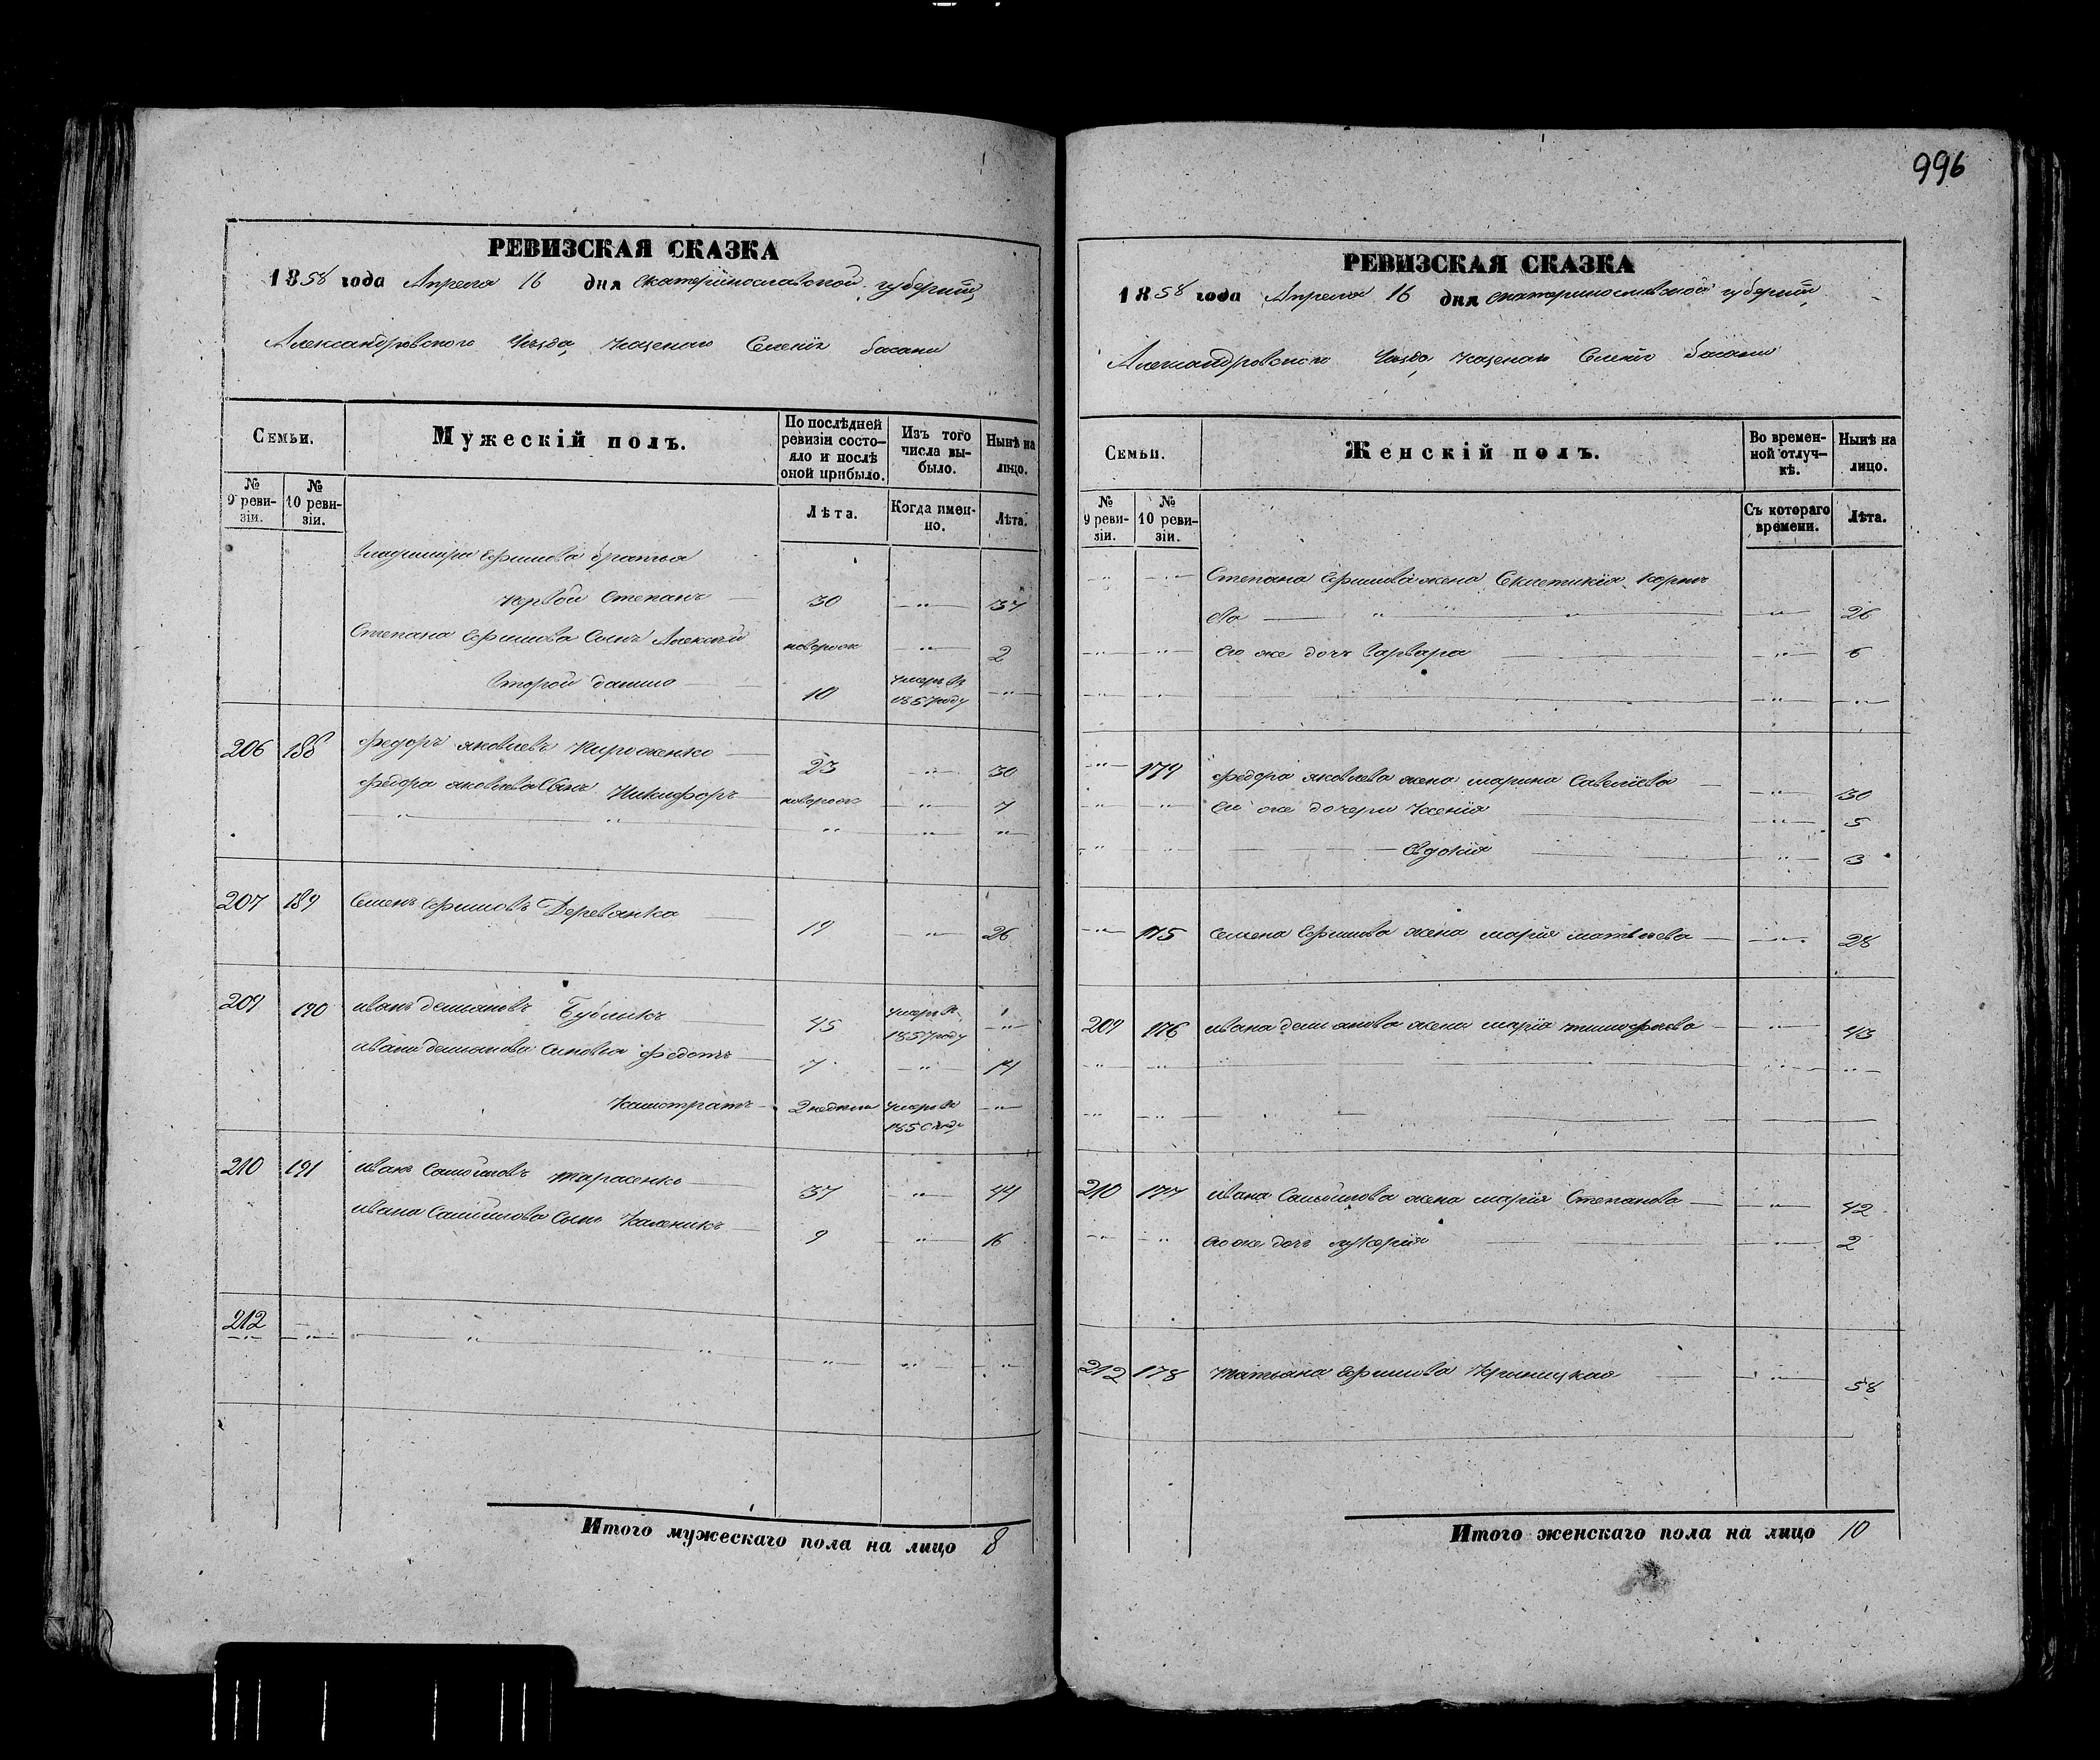 996
РЕВИЗСКАЯ СКАЗКА
1858 года Апреля 16 дня Екатеринославской губернии,
Александровского Уезда, Казеного Селенія Басани
Семьи.
Мужескій полъ.
По послѣдней ревизіи состояло и послѣ оной прибыло.
Изъ того числа выбыло.
Нынѣ на лицо.
№ 9 ревизіи.
№ 10 ревизіи.
Лѣта.
Когда именно.
Лѣта.
Владимира Ефимова братья
Первой Степанъ 30 37
Степана Ефимова Сынъ Алексѣй новорож 2
Второй Данило 10 умеръ въ 1857 году
206 188 Федоръ Яковлевъ 23 30
Федора Яковлева Сынъ Никифоръ новорож 7
207 189 Семенъ Ефимовъ Деревянка 19 26
209 190 Иванъ Демьяновъ Бубликъ 45 умеръ въ 1857 году
Ивана Демьянова Сыновья Федотъ 7 14
Калистратъ 2 недели умеръ въ 1850 году
210 191 Иванъ Самойловъ Тарасенко 37 44
Ивана Самойлова Сынъ Каленикъ 9 16
212
Итого мужескаго пола на лицо 8
РЕВИЗСКАЯ СКАЗКА
1858 года Апреля 16 дня Екатеринославской губерніи,
Александровского Уезда, Казеного Селенія Басани
Семьи.
Женскій полъ.
Во временной отлучкѣ.
Нынѣ на лицо.
№ 9 ревизіи.
№ 10 ревизіи.
Съ котораго времени.
Лѣта.
Степана Ефимова жена Секлетикія Корнѣ
ева 26
Его же дочь Варвара 6
174 Федора Яковлева жена Марина Савеліева 30
Его же дочери Ксенія 5
Евдокія 3
175 Семена Ефимова жена Марія Матвѣева 28
209 176 Ивана Демьянова жена Марія Тимофѣева 43
210 177 Ивана Самойлова жена Марія Степанова 42
Его же дочь Лукерія 2
212 178 Татьяна Ефимова Крыницкая 58
Итого женскаго пола на лицо 10